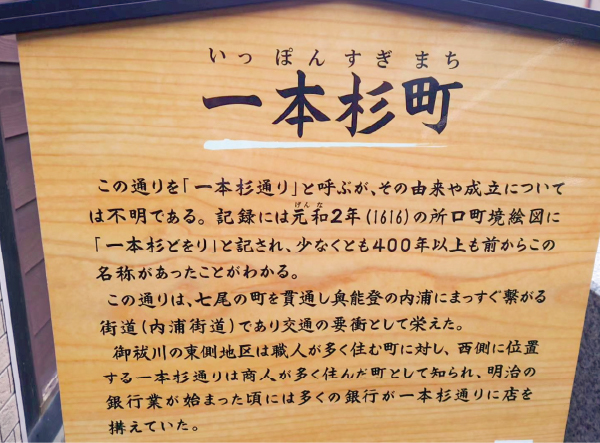 いっぽんすぎまち
一本杉町
この通りを「一本杉通り」と呼ぶが、その由来や成立について
げんな
は不明である。記録には元和2年(1616)の所口町境絵図に
「一本杉どをり」と記され、少なくとも400年以上も前からこの
名称があったことがわかる。
この通りは、七尾の町を貫通し奥能登の内浦にまっすぐ繋がる
街道(内浦街道)であり交通の要衝として栄えた。
御祓川の東側地区は職人が多く住む町に対し、西側に位置
する一本杉通りは商人が多く住んだ町として知られ、明治の
銀行業が始まった頃には多くの銀行が一本杉通りに店を
構えていた。